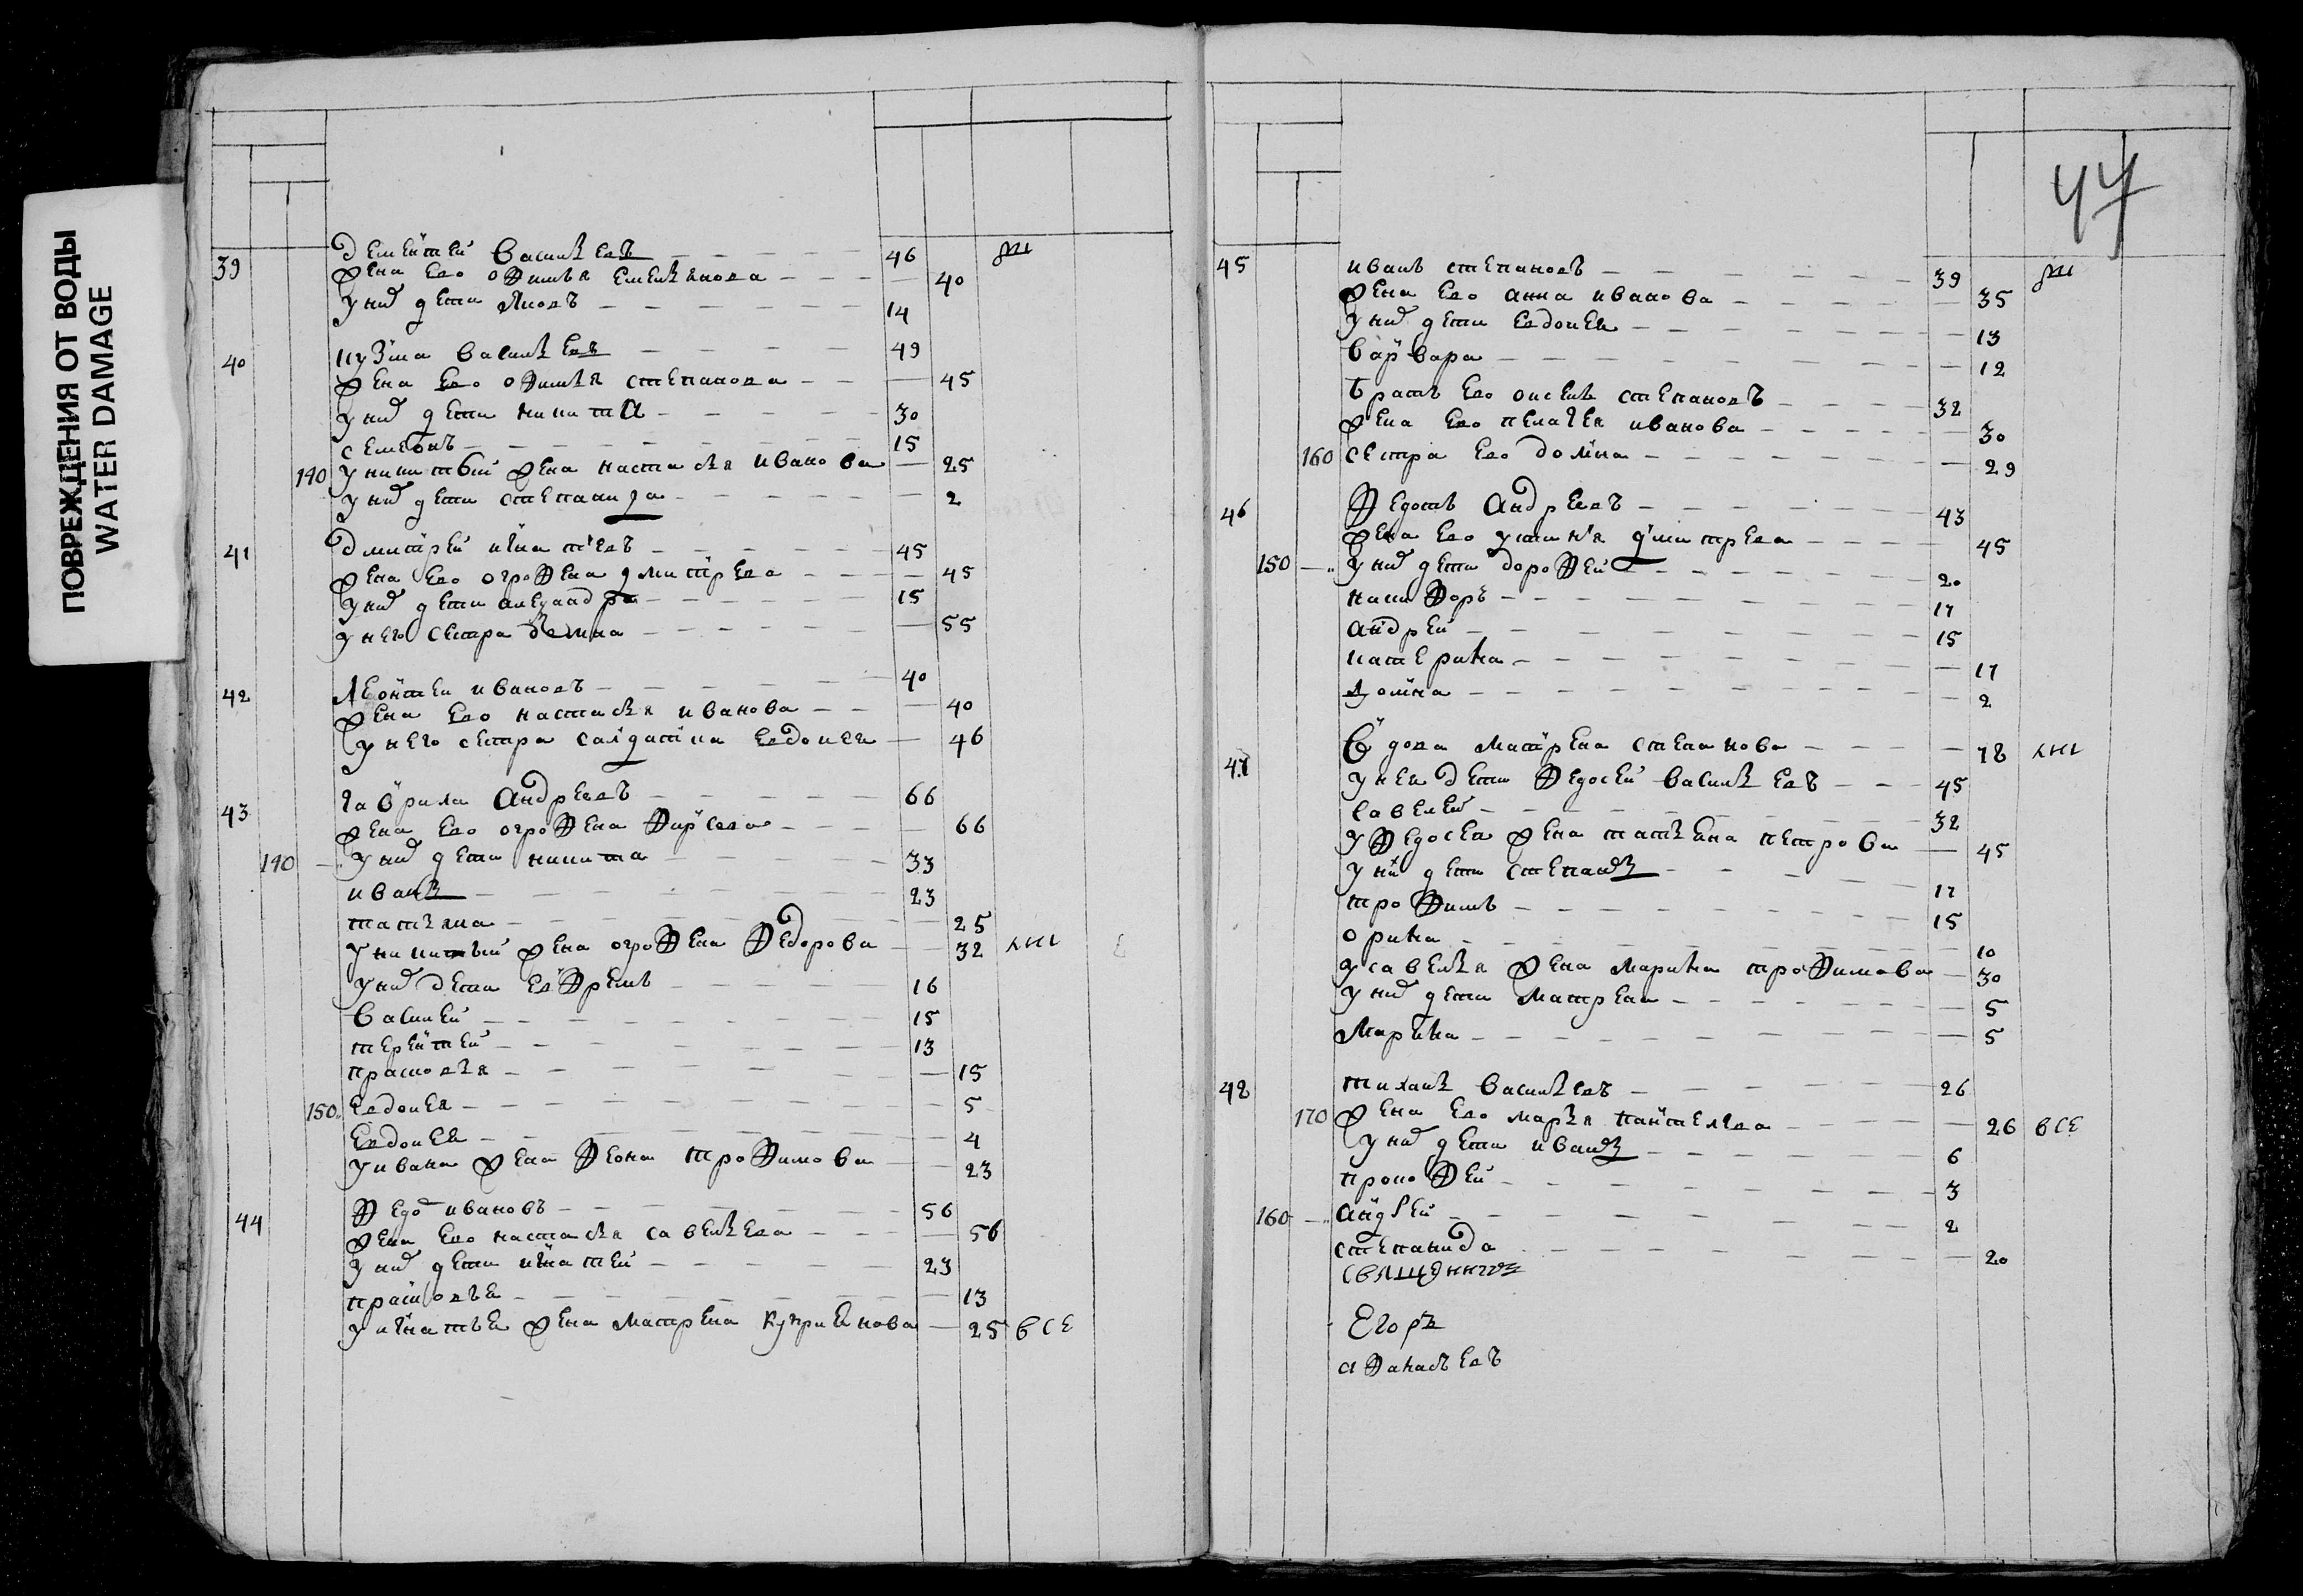 ПОВРЕЖДЕНИЯ ОТ ВОДЫ
WATER DAMAGE
39 дементей васильевъ 46
жена ево офимья емельянова 40
у них дети яковъ 14
40 кузма васильев 49
жена ево офимья степанова 45
у них дети никита 30
семионъ 15
140 у никиты жена настасья иванова 25
у них дети степанида 2
41 дмитрей игнатьевъ 45
жена ево огрофена дмитрева 45
у них дети 15
у него сестра 55
42 леонтеи ивановъ 40
жена ево настасья иванова 40
у него сестра салдатка евдокея 46
43 гаврила андреевъ 66
жена ево огрофена фирсова 66
140 у них дети никита 33
иванъ 23
татьяна 25
у никиты жена огрофена федорова 32
у них дети ефремъ 16
василей 15
терентей 13
прасковья 15
150 евдокея 5
евдокея 4
у ивана жена феона трофимова 23
44 федо ивановъ 56
жена ево настасья савельева 56
у них дети игнатей 23
прасковья 13
у игнатья жена матрена куприянова 25 все
47
45 иванъ степановъ 39
жена ево анна иванова 35
у них дети евдокея 13
варвара 12
братъ ево степановъ 32
жена ево пелагея иванова 30
160 сестра ево домна 29
46 федотъ андреевъ 43
жена ево устинья дмитрева 45
150 у них дети дорофей 20
никифоръ 17
андрей 15
катерина 17
домна 2
47 вдова матрена степанова 78
у неи дети федосей васильевъ 45
савелей 32
у федосея жена татьяна петрова 45
у них дети степанъ 17
трофимъ 15
орина 10
у савелья жена марина трофимова 30
у них дети матрена 5
марина 5
48 васильевъ 26
170 жена ево марья пантелева 26 все
у них дети иванъ 6
прокофей 3
160 андрей 2
степанида 20
священникъ
Егоръ
афанасьевъ